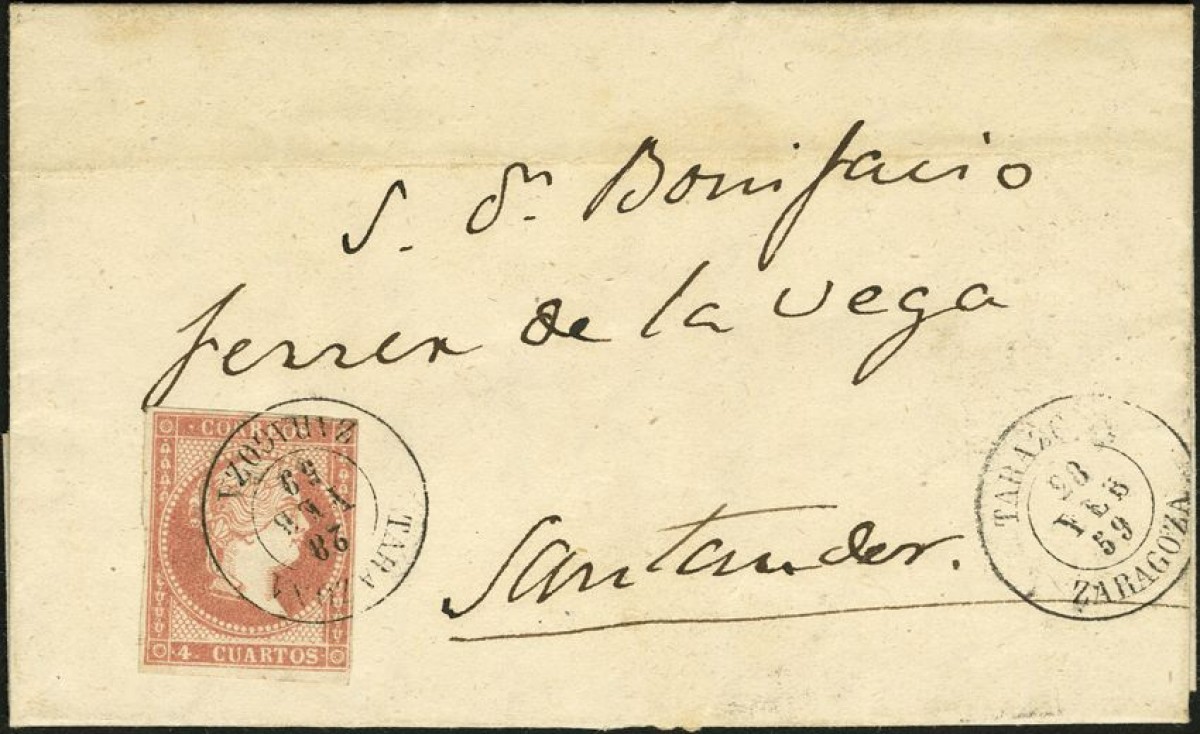 S. Dn. Bonifacio
Ferrer de la Vega
Santander.
CORREOS
4 CUARTOS
TARAZONA
28
FEB
59
ZARAGOZA
TARAZONA
28
FEB
59
ZARAGOZA